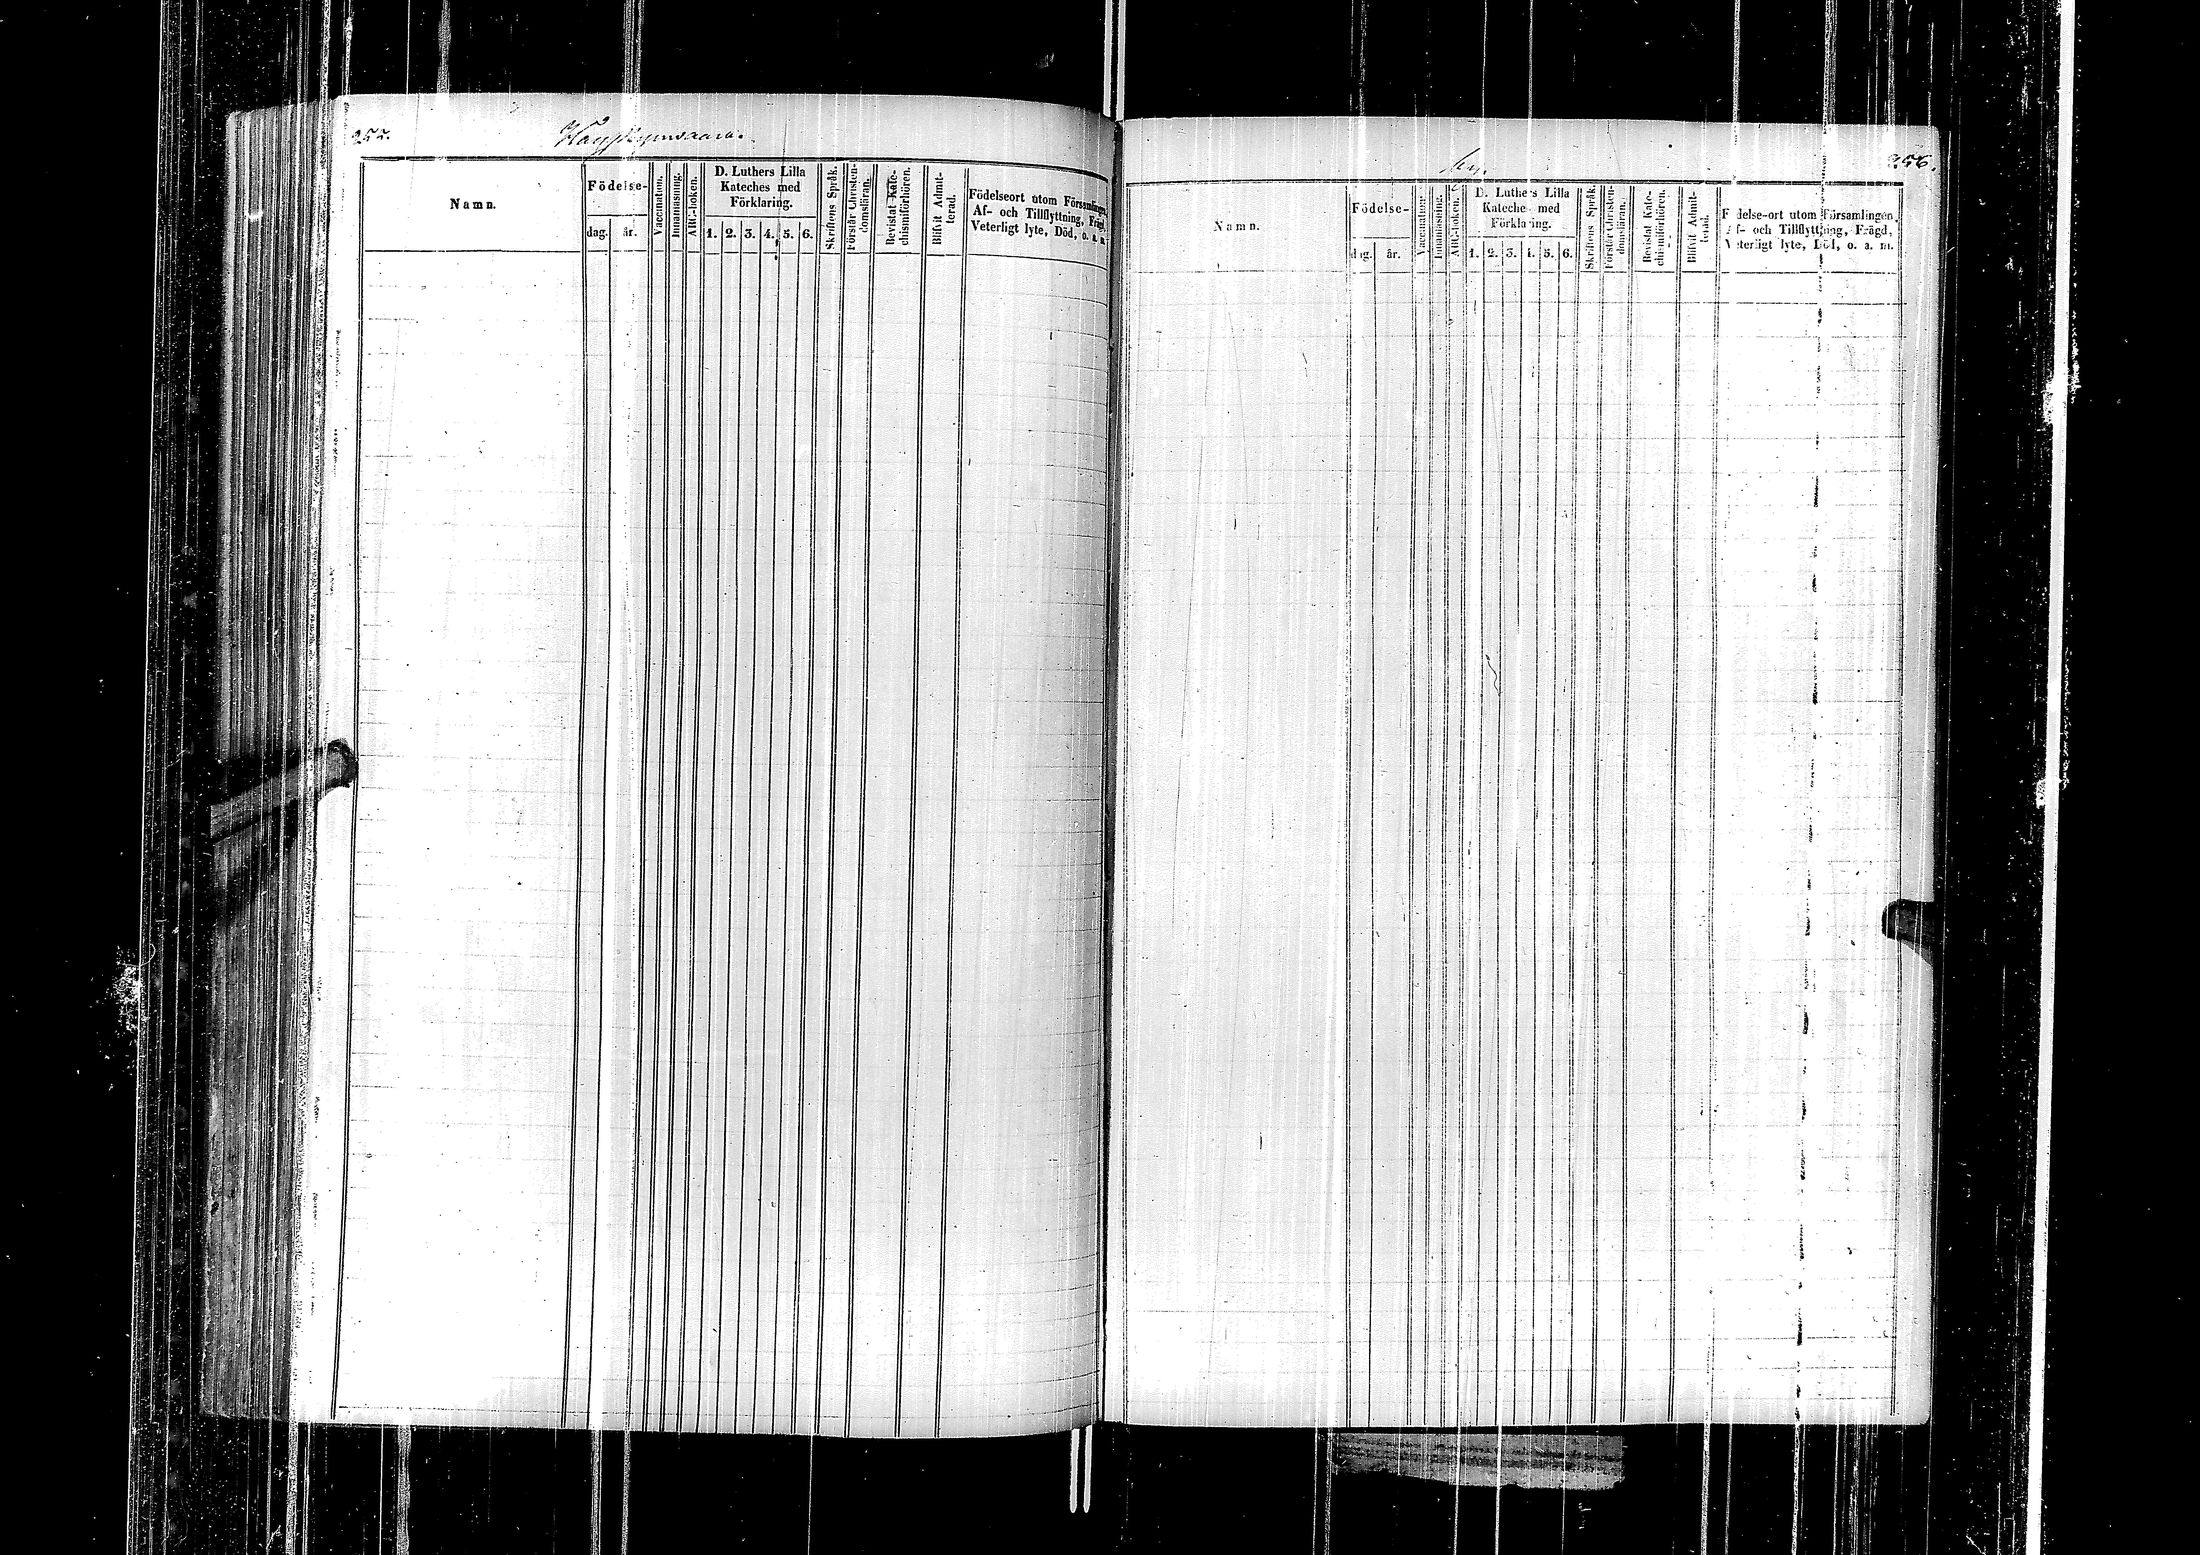 255.
Namn.
Födelse-
dag.
år.
Vaccination.
Innanläsning.
ABC-boken.
D. Luthers Lilla
Kateches med
Förklaring.
1. 2. 3. 4. 5. 6.
Skriftens Språk.
Förstår Christen-
domsläran.
Bevistat Kate-
chismiförhören.
Blifvit Admit-
terad.
Födelseort utom Församlingen,
Af- och Tillflyttning, Frägd,
Veterligt lyte, Död, o. a. m.
256.
Namn.
Födelse-
dag.
år.
Vaccination.
Innanläsning.
ABC-boken.
D. Luthers Lilla
Kateches med
Förklaring.
1. 2. 3. 4. 5. 6.
Skriftens Språk.
Förstår Christen-
domsläran.
Bevistat Kate-
chismiförhören.
Blifvit Admit-
terad.
Födelse-ort utom Församlingen,
Af- och Tillflyttning, Frägd,
Veterligt lyte, Död, o. a. m.